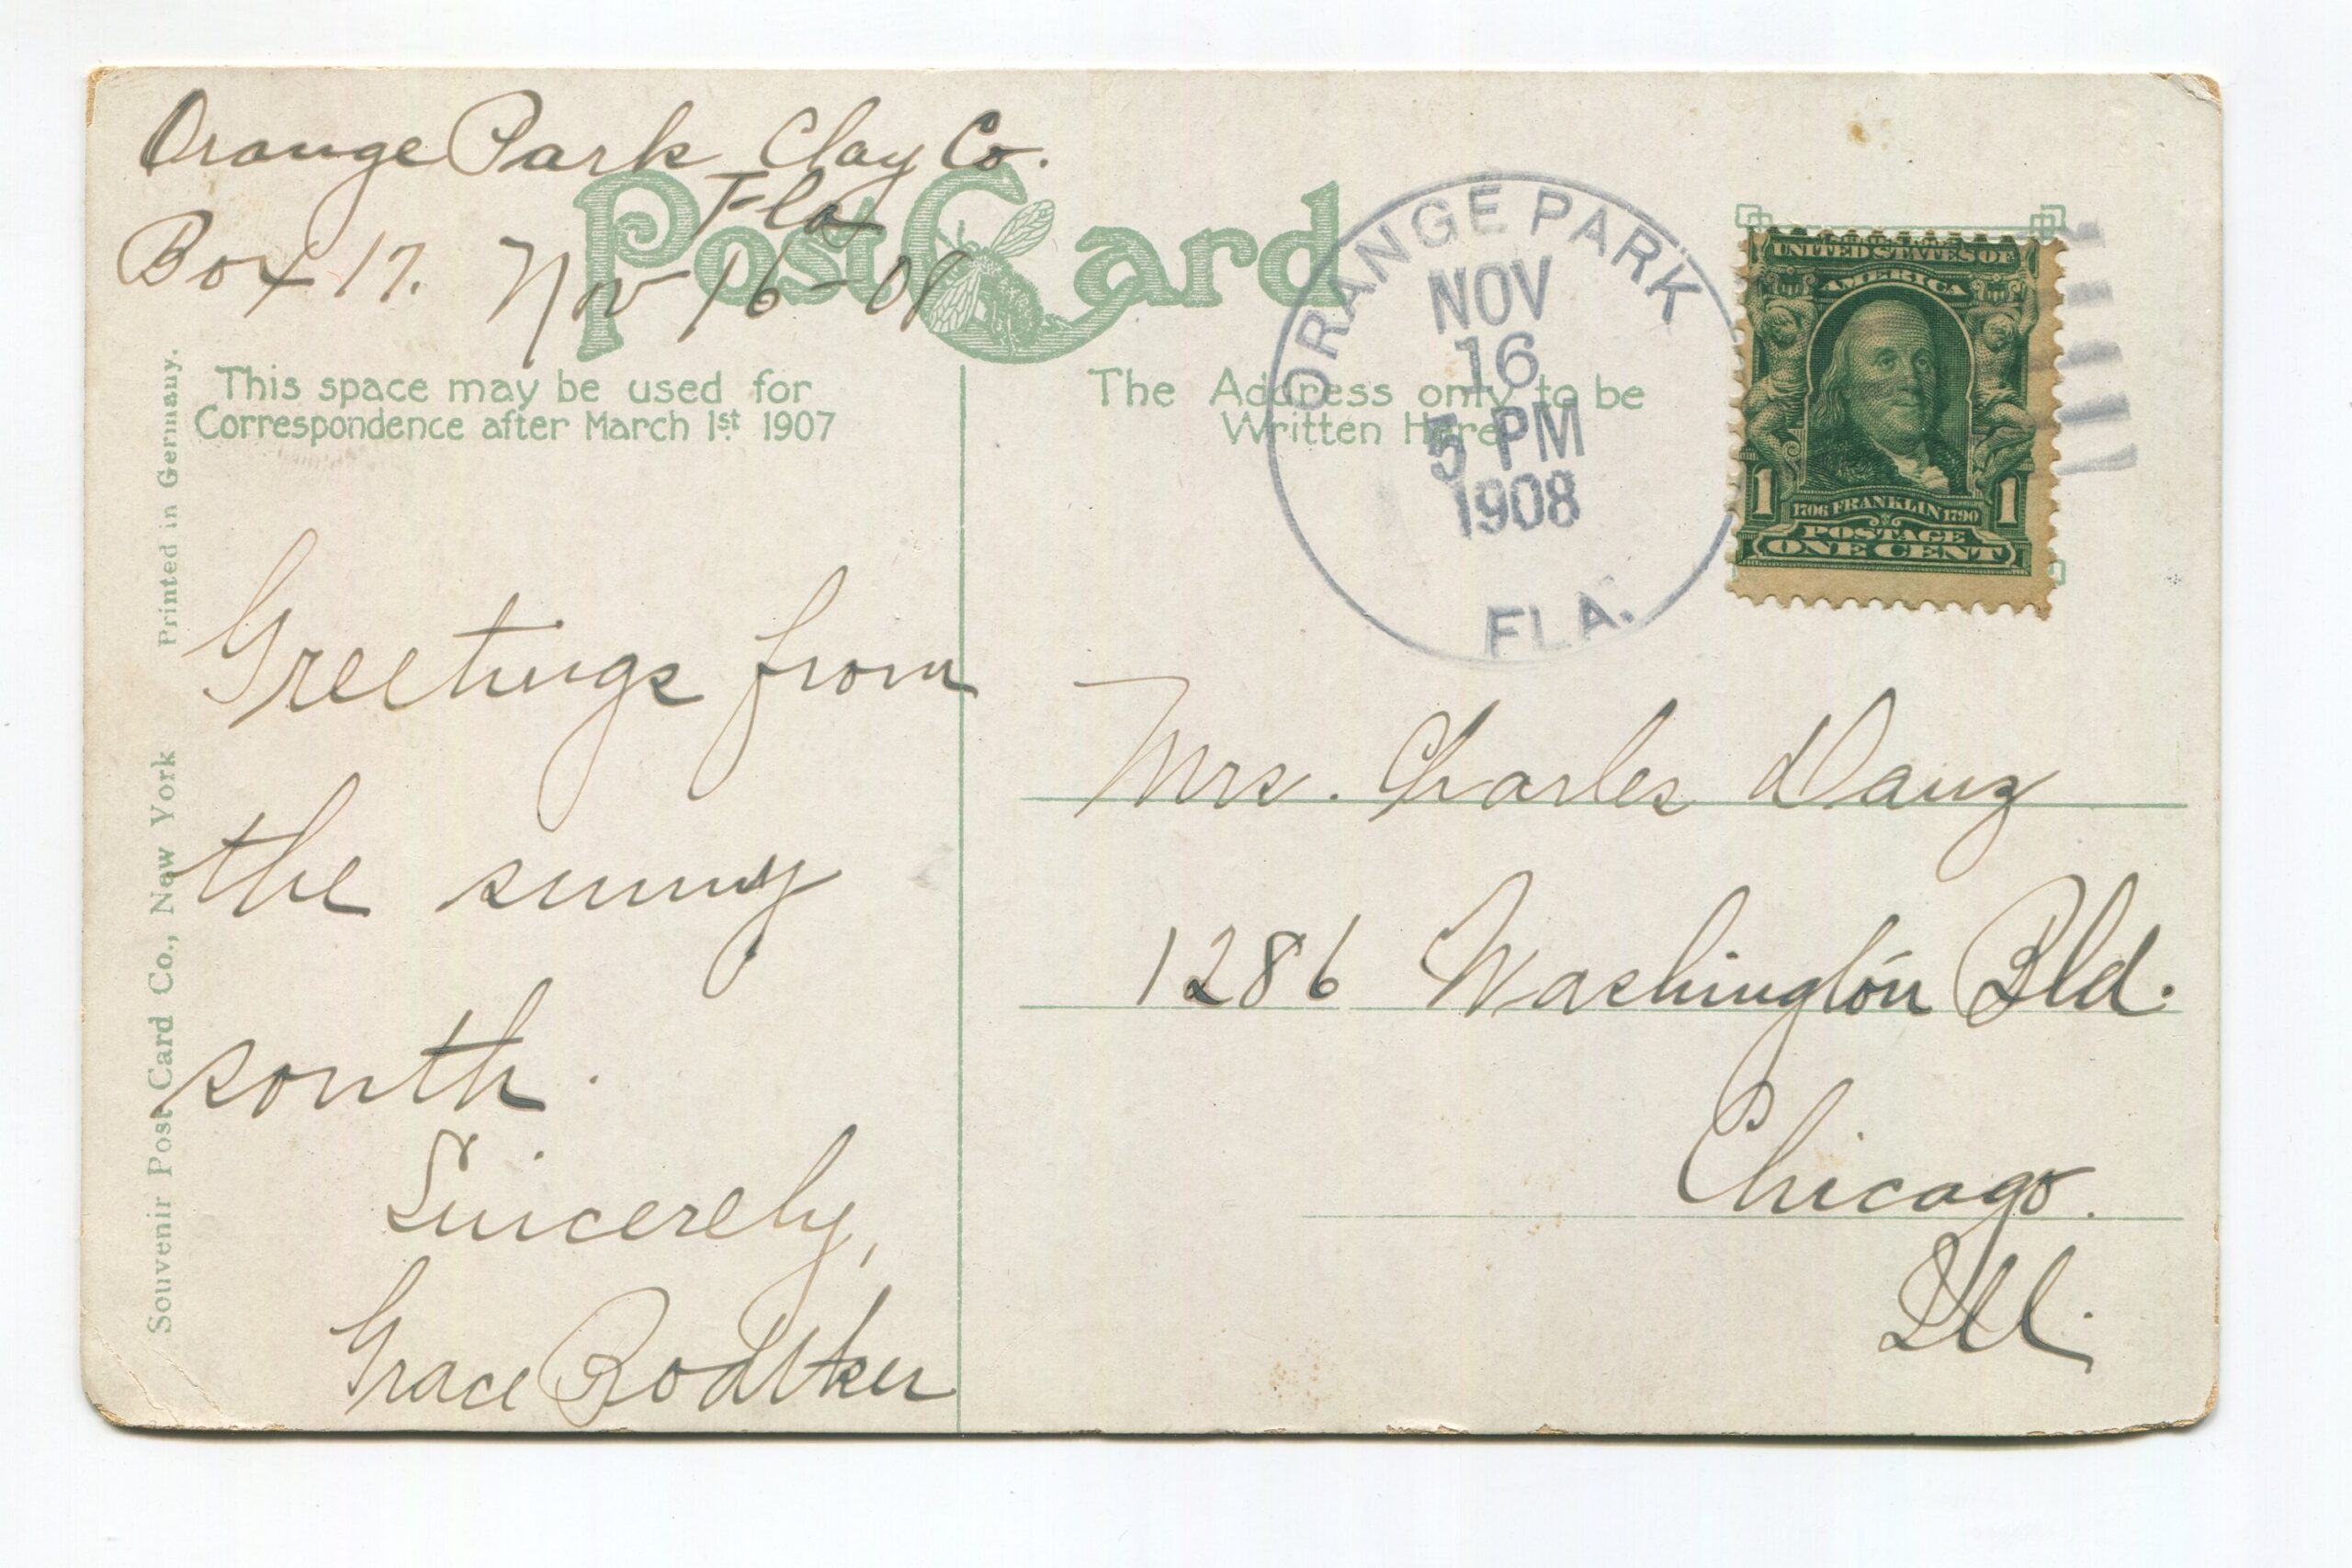 Orange Park Clay Co.
Fla
Box 17. Nov 16-08
Post Card
This space may be used for
Correspondence after March 1st 1907
The Address only to be
Written Here
ORANGE PARK
NOV
16
5 PM
1908
FLA.
UNITED STATES OF
AMERICA
1 1
1706 FRANKLIN 1790
POSTAGE
ONE CENT
Greetings from
the sunny
south.
Sincerely,
Grace
Mrs. Charles Danz
1286 Washington Bld.
Chicago.
Ill.
Souvenir Post Card Co., New York Printed in Germany.